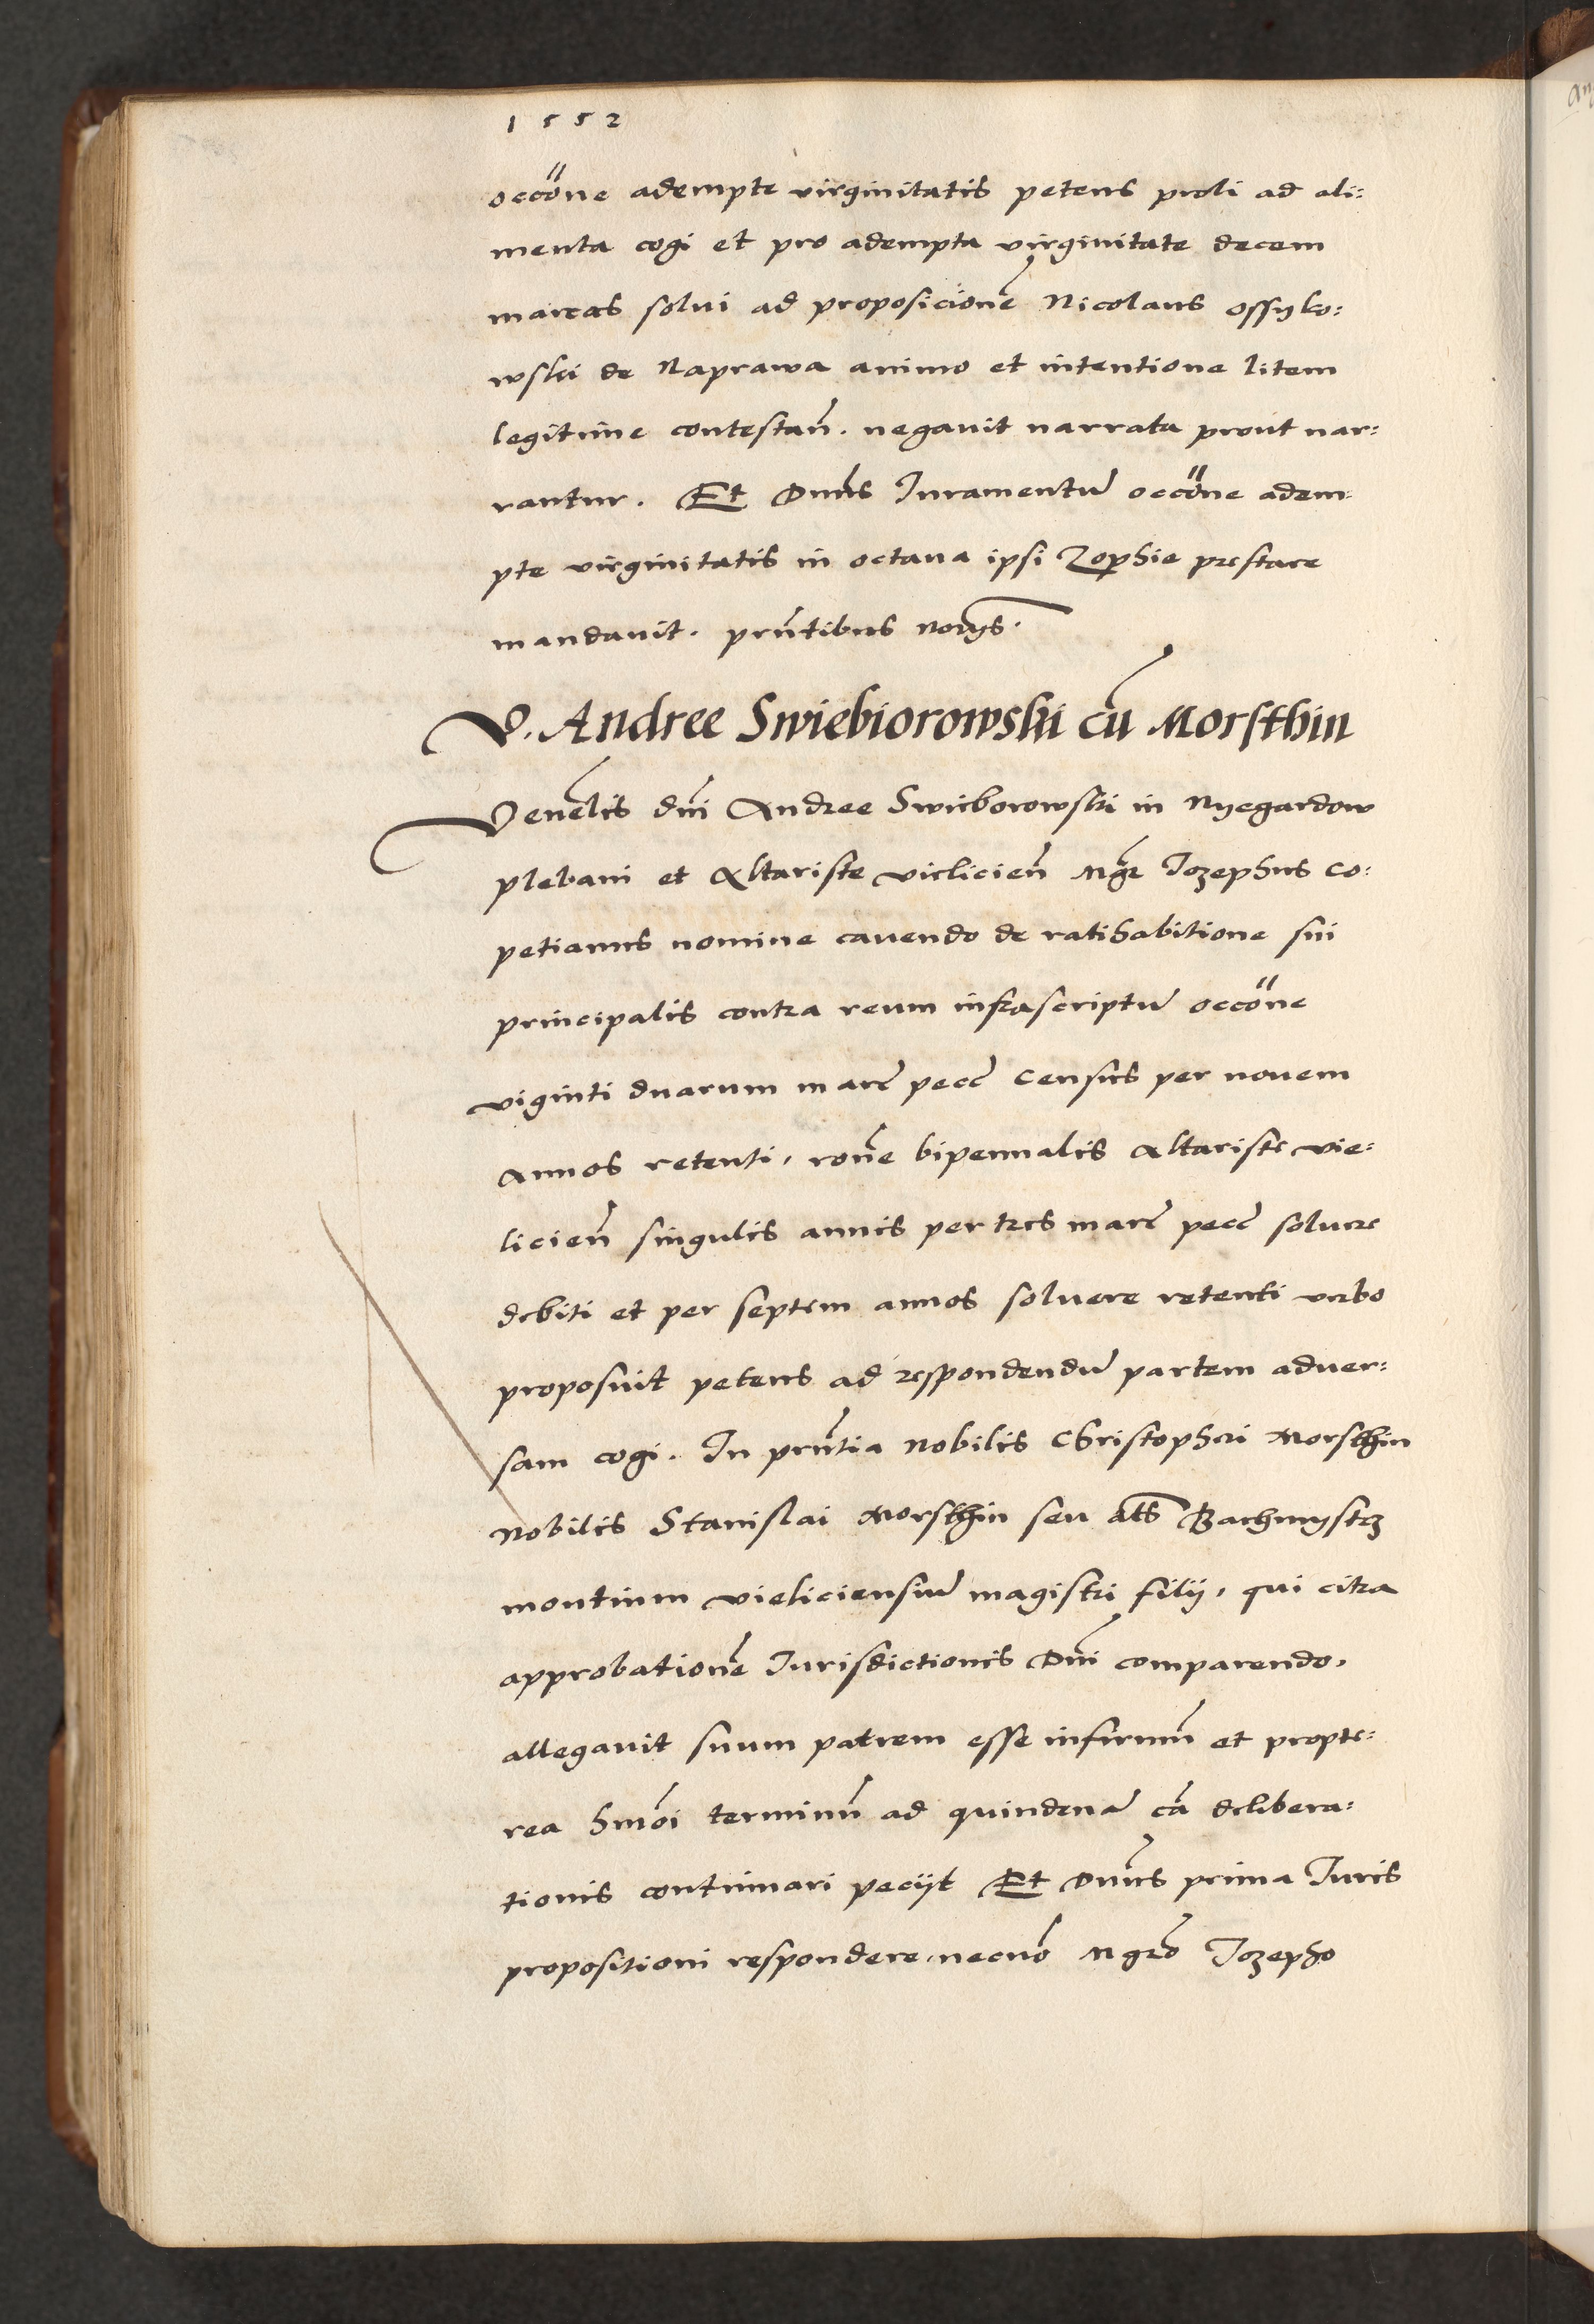 1552
occõne adempte virginitatis petens proli ad ali:
menta cogi et pro adempta virginitate decem
marcas solui ad proposicionẽ Nicolaus Ossyko:
wski de Naprawa animo et intentione litem
legitime contestañ. negauit narrata prout nar:
rantur. Et Dnũs Juramentũ occõne adem:
pte virginitatis in octaua ipsi Zophie prestare
mandauit. prñtibus norijs.
V. Andree Swiebiorowski cũ Morsthin
Venẽlis dñi Andree Swieborowski in Nyegardow
plebani et Altariste vielicieñ Mgr̃ Jozephus Co:
petianus nomine cauendo de ratihabitione sui
principalis contra reum infrascriptũ occõne
viginti duarum marc̃ pecc̃ census per nouem
annos retenti, rõne bipennalis Altariste vie:
licieñ singulis annis per tres marc̃ pecc̃ soluere
debiti et per septem annos soluere retenti verbo
proposuit petens ad respondendũ partem aduer:
sam cogi. In prñtia Nobilis Christophori Morsthin
Nobilis Stanislai Morsthin seu al̃s Bachmystrz
montium vieliciensiũ magistri filij, qui citra
approbationẽ Jurisdictionis Dñi comparendo,
allegauit suum patrem esse infirmũ et propte:
rea hmõi terminũ ad quindenã cã delibera:
tionis continuari pecijt Et Dnũs prima Juris
propositioni respondere, necnõ Mgrõ Jozepho